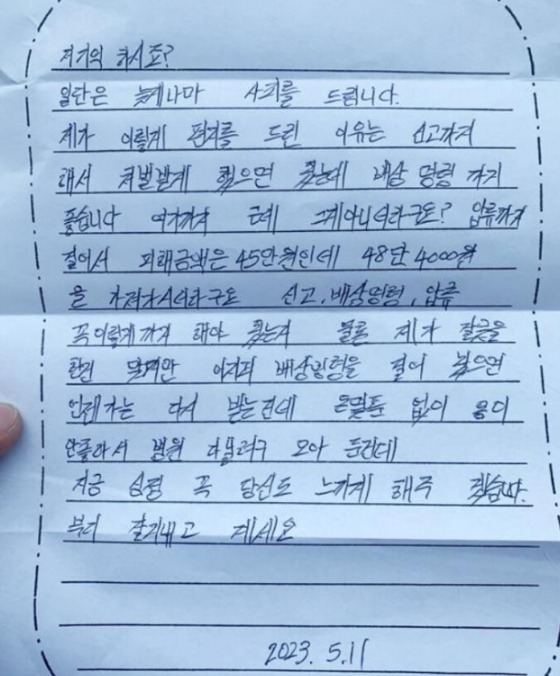 저기억 하시죠?
일단은 늦게나마 사죄를 드립니다.
제가 이렇게 편지를 드린 이유는 신고까지
해서 처벌받게 했으면 됬는데 배상 명령 까지
좋습니다 여기까지 근데 그게아니더라구요? 압류까지
걸어서 피해금액은 45만원인데 48만 4000원
을 가져가시더라구요 신고, 배상명령, 압류
꼭이렇게까지 해야 됬는지 물론 제가 잘못을
한건 맞지만 어차피 배상명령을 걸어 놨으면
언젠가는 다시 받는건데 돈없는 몸이
안좋아서 병원 다닐려구 모아 둔건데
지금 심정 꼭 당신도 느끼게 해주 겠습니다.
부디 잘지내고 계세요
2023. 5.11